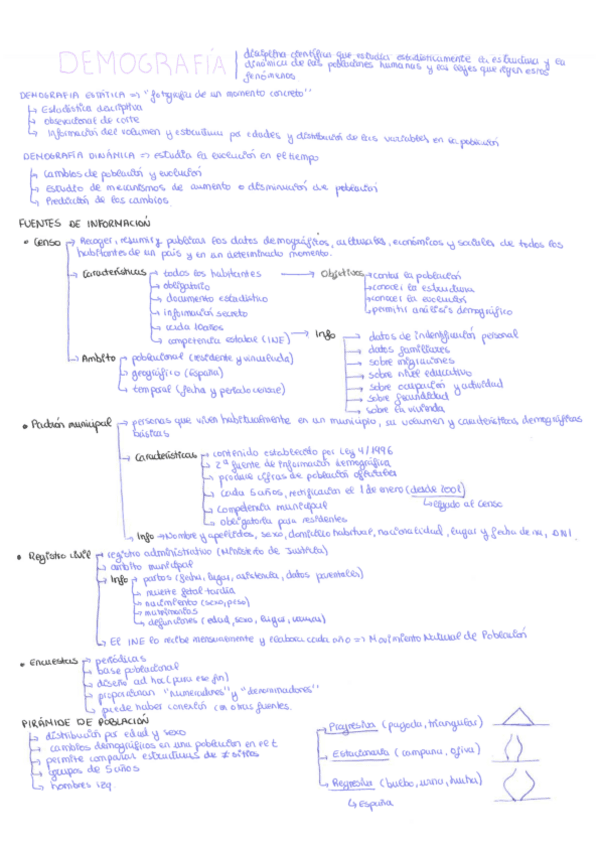 DEMOGRAFÍA
disciplina científica que estudia estadísticamente la estructura y la
dinámica de las poblaciones humanas y las leyes que rigen estos
fenómenos.
DEMOGRAFIA ESTÁTICA => "fotografía de un momento concreto"
↳ Estadística descriptiva
↳ observacional de corte
↳ información del volumen y estructura por edades y distribución de las variables en la población
DEMOGRAFÍA DINÁMICA => estudia la evolución en el tiempo
↳ cambios de población y evolución
↳ estudio de mecanismos de aumento o disminución de población
↳ Predicción de los cambios.
FUENTES DE INFORMACION
• Censo → Recoger, resumir y publicar los datos demográficos, culturales, económicos y sociales de todos los
habitantes de un país y en un determinado momento.
↳ Características → todos los habitantes → Objetivos → contar la población
↳ obligatorio ↳ conocer la estructura
↳ documento estadístico ↳ conocer la evolución
↳ información secreto ↳ permitir análisis demográfico
↳ cada 10 años
↳ competencia estatal (INE) → Info → datos de indentificación personal
↳ Ambito → poblacional (residente y vinculada) ↳ datos familiares
↳ geográfico (España) ↳ sobre migraciones
↳ temporal (fecha y periodo censal) ↳ sobre nivel educativo
↳ sobre ocupación y actividad
↳ sobre fecundidad
↳ sobre la vivienda
• Padrón municipal → personas que viven habitualmente en un municipio, su volumen y características demográficas
básicas
↳ Características → contenido establecido por Ley 4/1996
↳ 2ª fuente de información demográfica
↳ produce cifras de población
↳ cada 5 años, rectificación el 1 de enero (desde 2001)
↳ ligado al censo
↳ Competencia municipal
↳ obligatoria para residentes
↳ Info → Nombre y apellidos, sexo, domicilio habitual, nacionalidad, lugar y fecha de na, DNI.
• Registro civil → registro administrativo (Ministerio de Justicia)
↳ ambito municipal
↳ Info → partos (fecha, lugar, asistencia, datos parentales)
↳ muerte fetal tardía
↳ nacimiento (sexo, peso)
↳ matrimonios
↳ defunciones (edad, sexo, lugar, causas)
↳ El INE lo recibe mensualmente y elabora cada año => Movimiento Natural de Población
• Encuestas → periódicas
↳ base poblacional
↳ diseño ad hoc (para ese fin)
↳ proporcionan "numeradores" y "denominadores"
↳ puede haber conexión con otras fuentes.
PIRÁMIDE DE POBLACIÓN
↳ distribución por edad y sexo
↳ cambios demográficos en una población en el t
↳ permite comparar estructuras de ≠ sitios
↳ grupos de 5 años
↳ hombres izq.
→ Progresiva (pagoda, triangular)
→ Estacionaria (campana, ojiva)
→ Regresiva (bulbo, urna, hucha)
↳ España